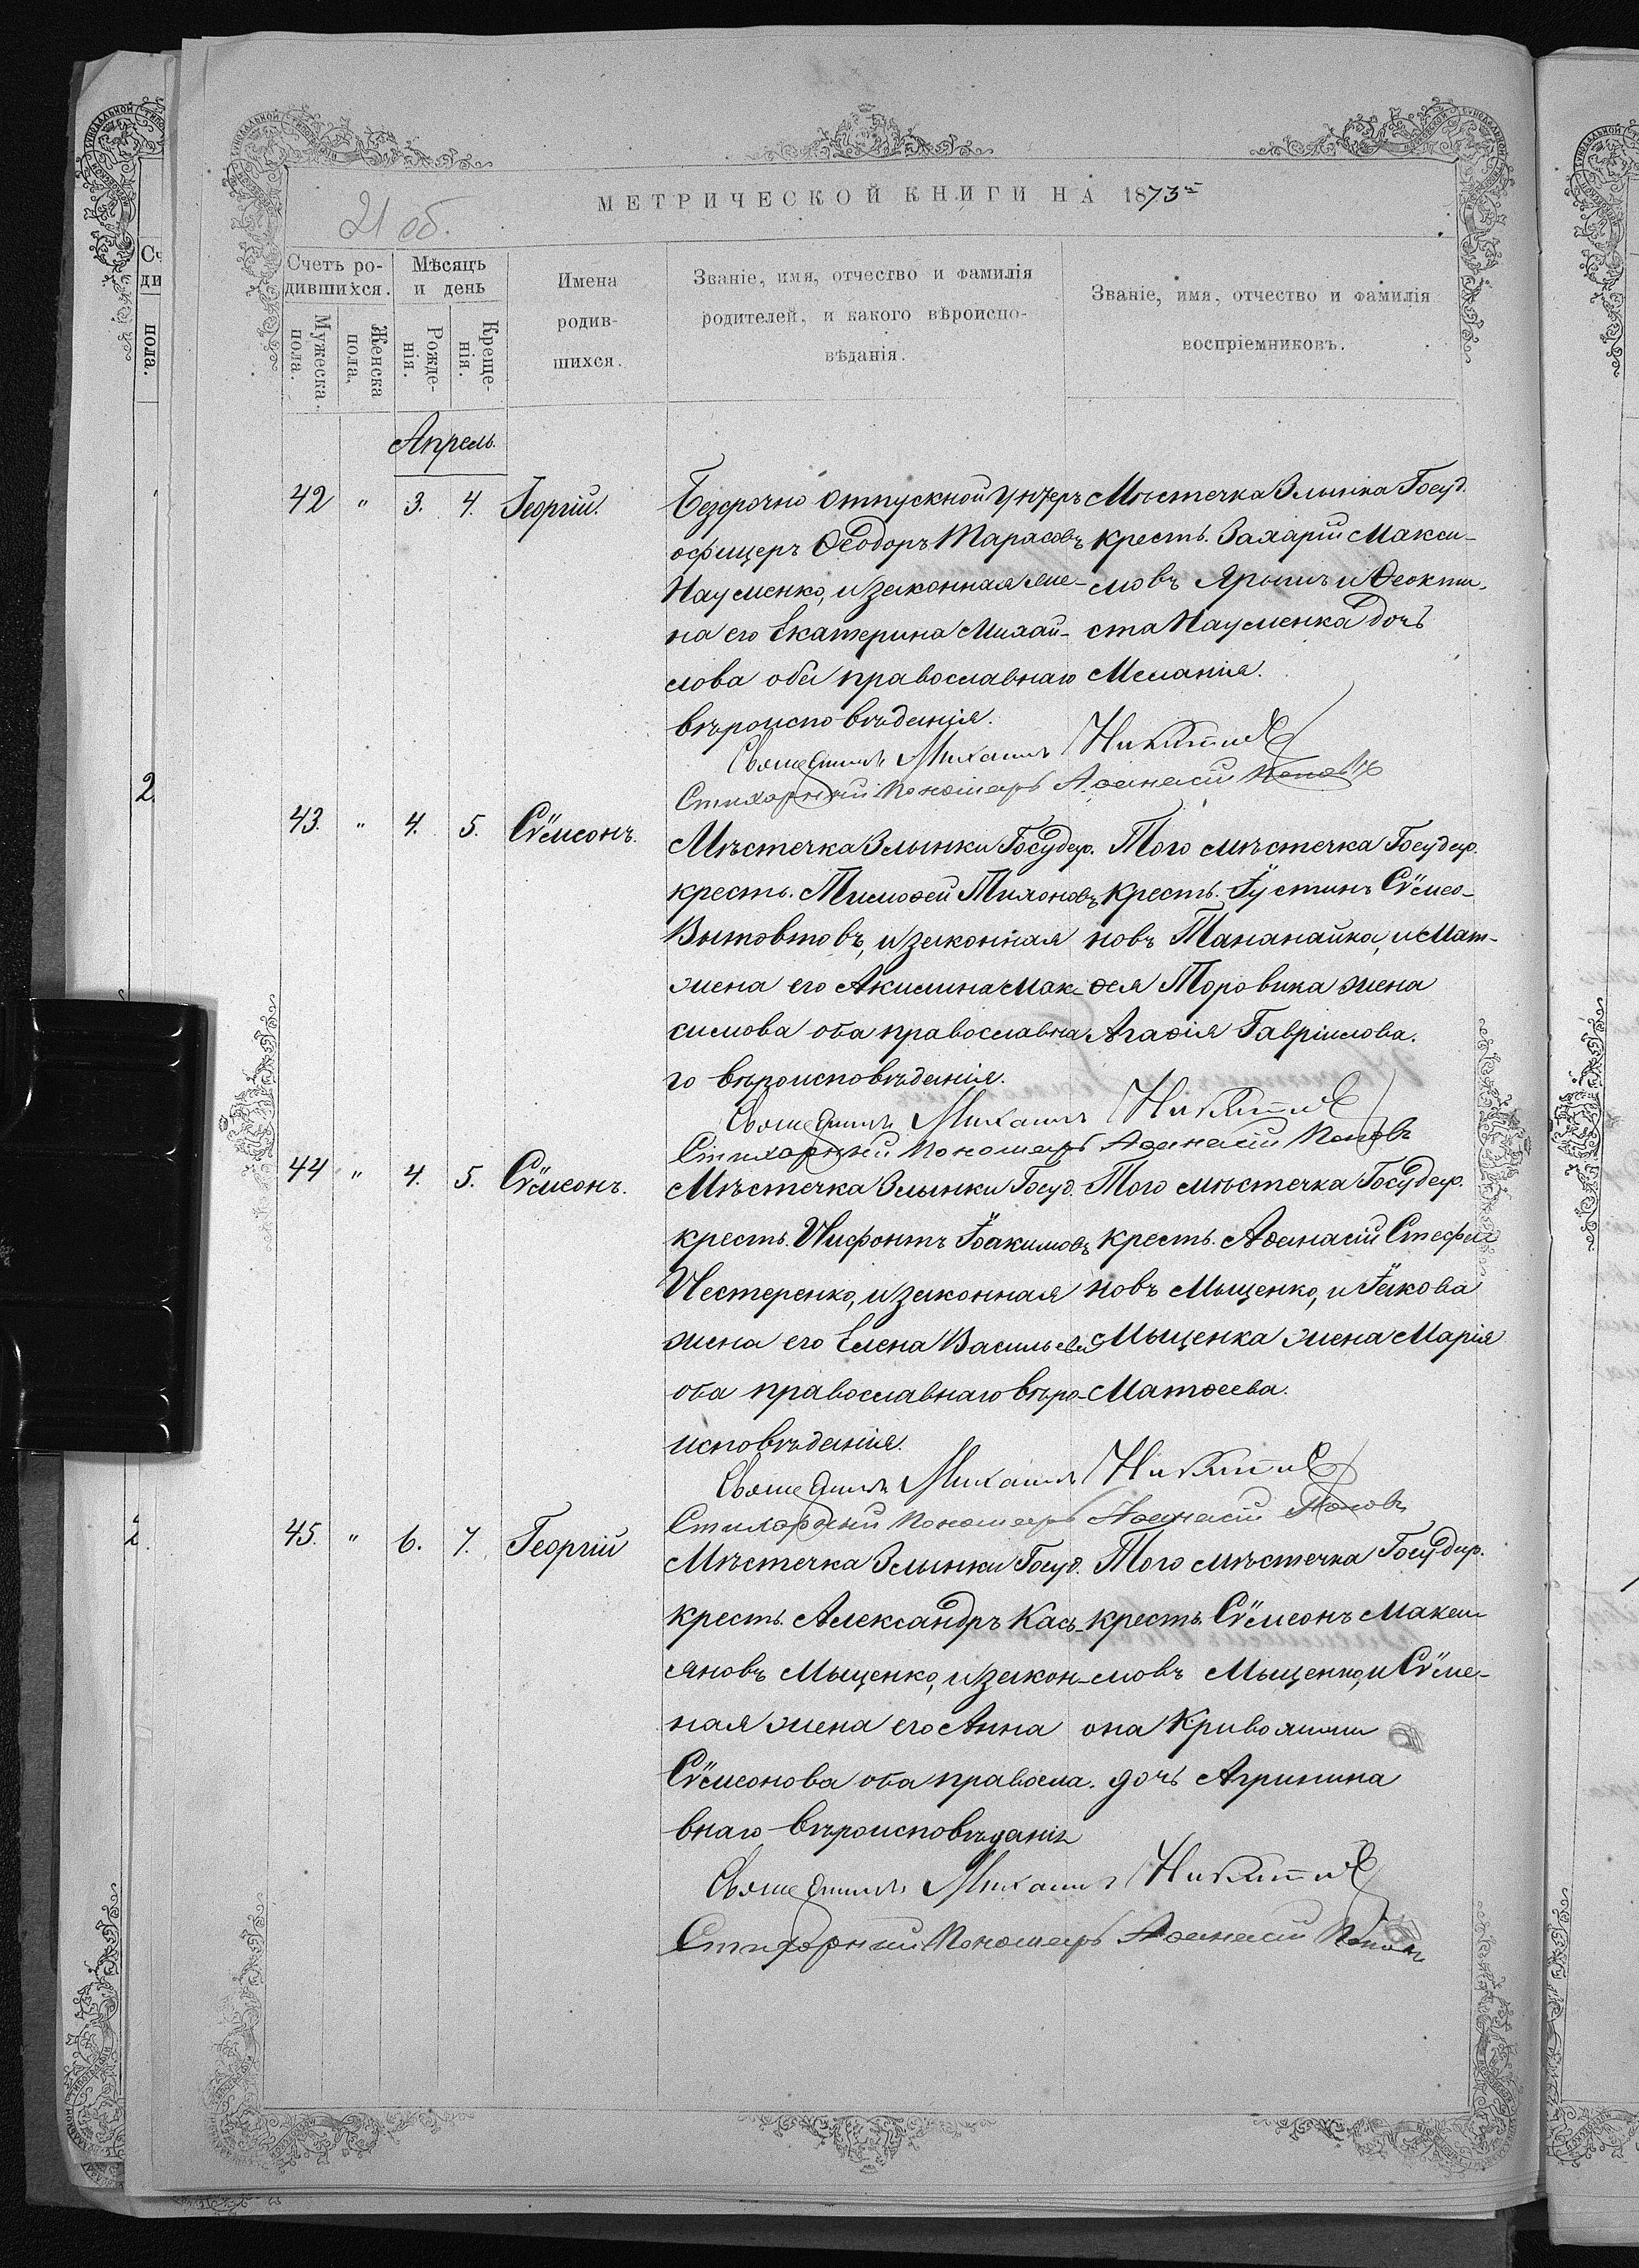 МЕТРИЧЕСКОЙ КНИГИ НА 1873
21 об.
Счетъ родившихся.
Мужеска пола.
Женска пола,
Мѣсяцъ и день
Рожде-нія.
Креще-нія.
Имена родив-шихся.
Званіе, имя, отчество и фамилія
родителей, и какого вѣроиспо-
вѣданія.
Званіе, имя, отчество и фамилія
воспріемниковъ.
Апрель.
42 " 3. 4. Георгій.
Безсрочно отпускной унтеръ
офицеръ Ѳеодоръ Тарасовъ
Науменко, и законная же-
на его Екатерина Михаи-
лова оба православнаго
вѣроисповѣданія.
Мѣстечка Злынка Госуд.
крестъ. Захарій Макси-
мовъ Ярышъ и Ѳеокти-
ста Науменка дочь
Меланія.
Священникъ Михаилъ Никитин
Стихарный Пономарь Аѳанасій Поповъ
43. " 4. 5. Сѵмеонъ.
Мѣстечка Злынки Государ.
крестъ. Тимоѳей Тихоновъ
Вытовтовъ, и законная
жена его Акилина Мак-
симова оба православна
го вѣроисповѣданія.
Того мѣстечка Государ.
крестъ. Іустинъ Сѵмео-
новъ Тананайко, и Мат-
ѳея Торовика жена
Агаѳія Гавріилова.
Священникъ Михаилъ Никитин
Стихарный Пономарь Аѳанасій Поповъ
44 " 4. 5. Сѵмеонъ.
Мѣстечка Злынки Госуд.
крестъ. Нифонтъ Іоакимовъ
Нестеренко, и законная
жена его Елена Васильева
оба православнаго вѣро-
исповѣданія.
Того мѣстечка Государ.
крестъ. Аѳанасій Стефа
новъ Мыщенко, и Іакова
Мыщенка жена Марія
Матѳеева.
Священникъ Михаилъ Никитин
Стихарный Пономарь Аѳанасій Поповъ
45. " 6. 7. Георгій
Мѣстечка Злынки Госуд.
крестъ. Александръ Кась-
яновъ Мыщенко, и закон-
ная жена его Анна
Сѵмеонова оба правосла-
внаго вѣроисповѣданія
Того мѣстечка Государ.
крестъ. Сѵмеонъ Макси
мовъ Мыщенко, и Сѵме-
она Кривошии
дочь Агрипина
Священникъ Михаилъ Никитин
Стихарный Пономарь Аѳанасій Поповъ